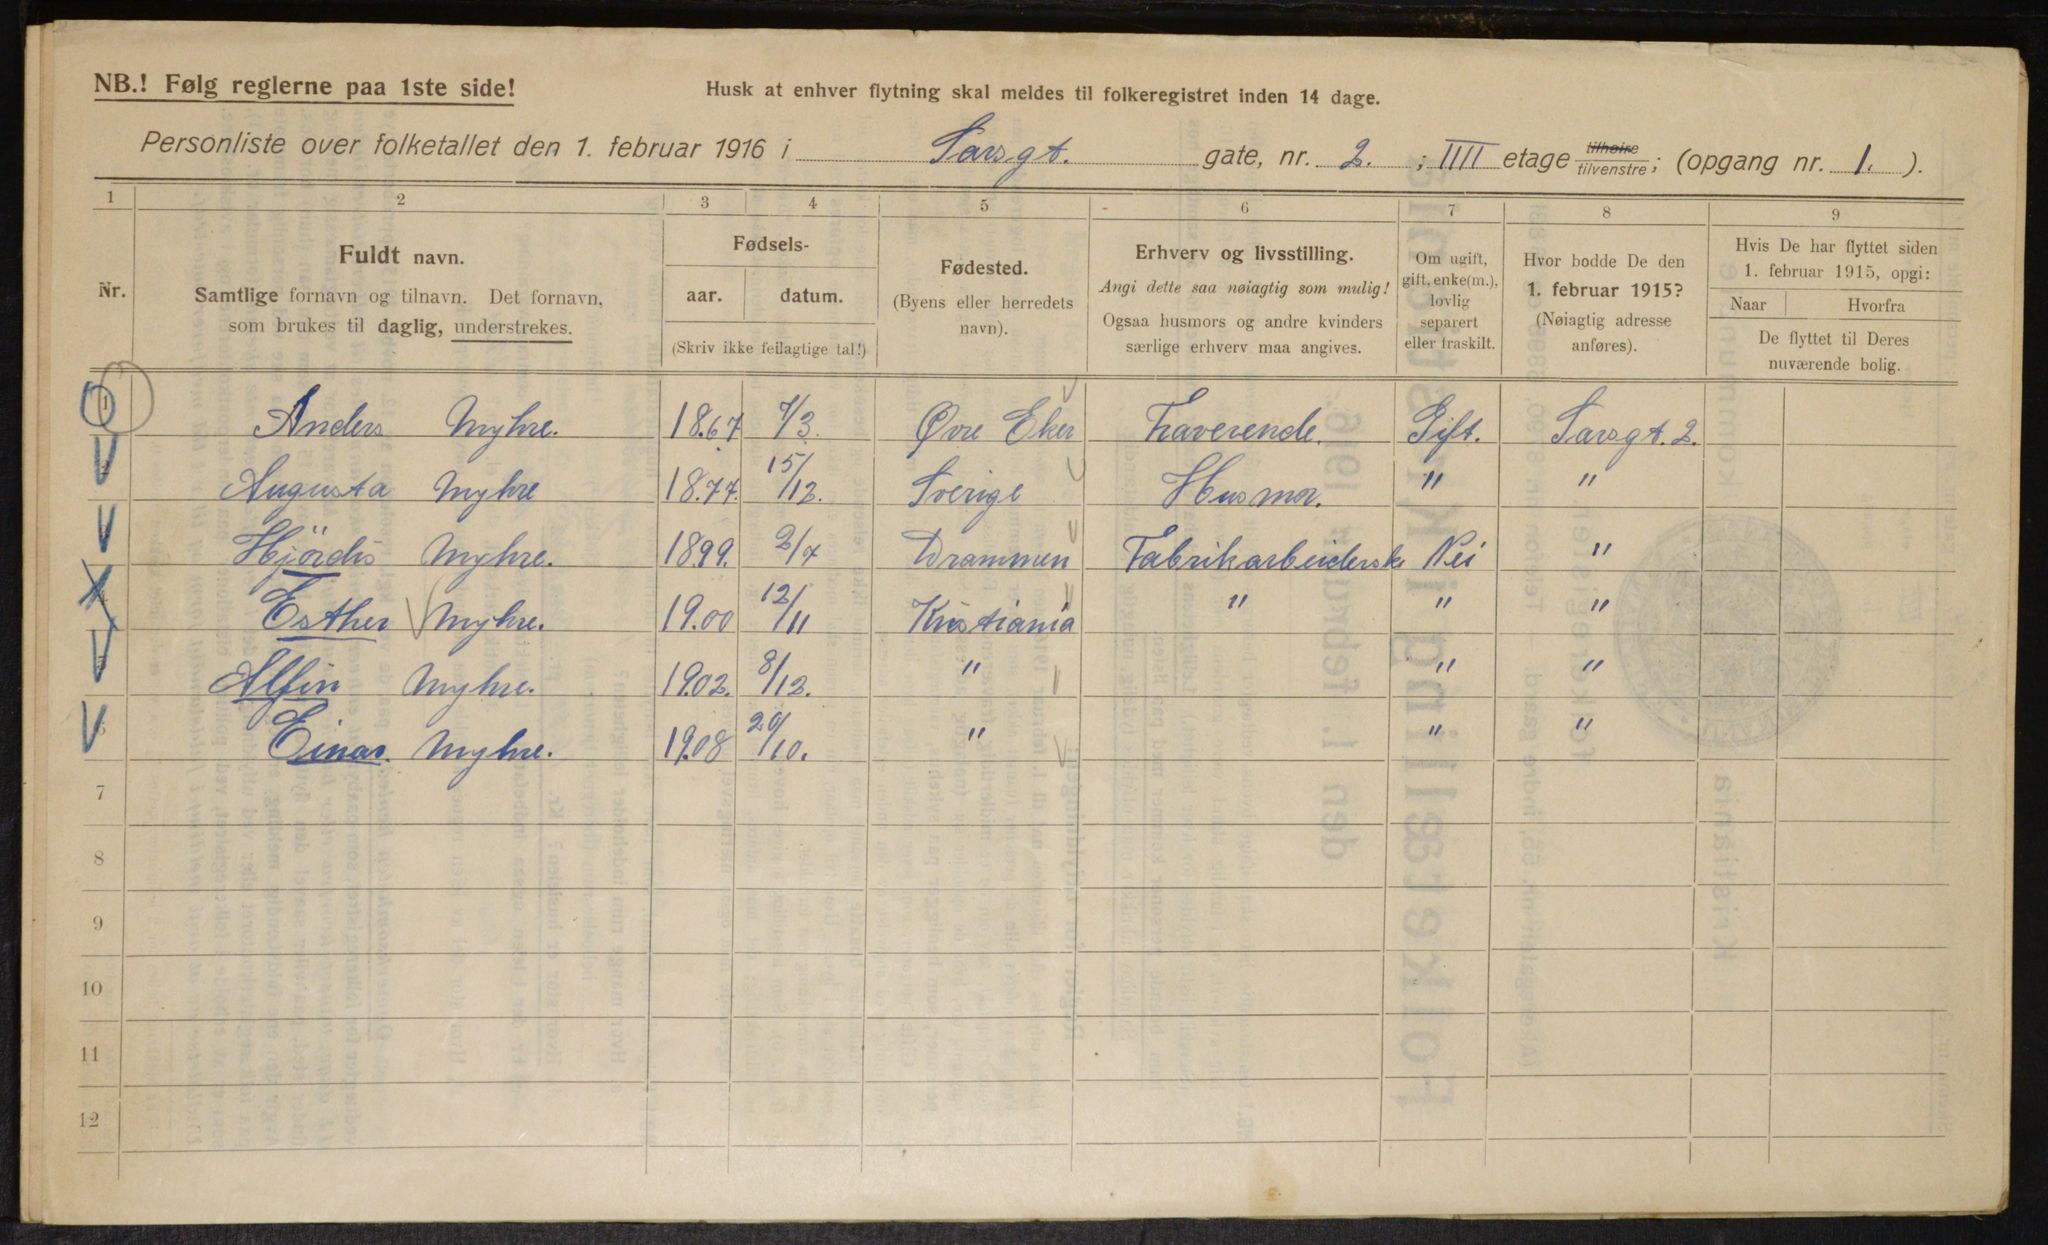 NB.! Følg reglerne paa 1ste side!
Husk at enhver flytning skal meldes til folkeregistret inden 14 dage.
Personliste over folketallet den 1. februar 1916 i Sarsgt. gate, nr. 2. ; IIII etage tilhøire tilvenstre; (opgang nr. 1. ).
1 2 3 4 5 6 7 8 9
Nr.
Fuldt navn.
Samtlige fornavn og tilnavn. Det fornavn,
som brukes til daglig, understrekes.
Fødsels-
aar. datum.
(Skriv ikke feilagtige tal!)
Fødested.
(Byens eller herredets
navn).
Erhverv og livsstilling.
Angi dette saa nøiagtig som mulig!
Ogsaa husmors og andre kvinders
særlige erhverv maa angives.
Om ugift,
gift, enke(m.),
lovlig
separert
eller fraskilt.
Hvor bodde De den
1. februar 1915?
(Nøiagtig adresse
anføres).
Hvis De har flyttet siden
1. februar 1915, opgi:
Naar Hvorfra
De flyttet til Deres
nuværende bolig.
1 Anders Myhre. 1867 7/3. Øvre Eker Gift. Sarsgt. 2.
Augusta Myhre 1877. 15/12. Sverige Husmor. " "
Hjördis Myhre. 1899. 2/7 Drammen Fabrikarbeiderske Nei "
Esther Myhre. 1900 12/11 Kristiania " " "
Alfin Myhre. 1902. 8/12. " " "
Einar. Myhre. 1908 20/10. " " "
7
8
9
10
11
12